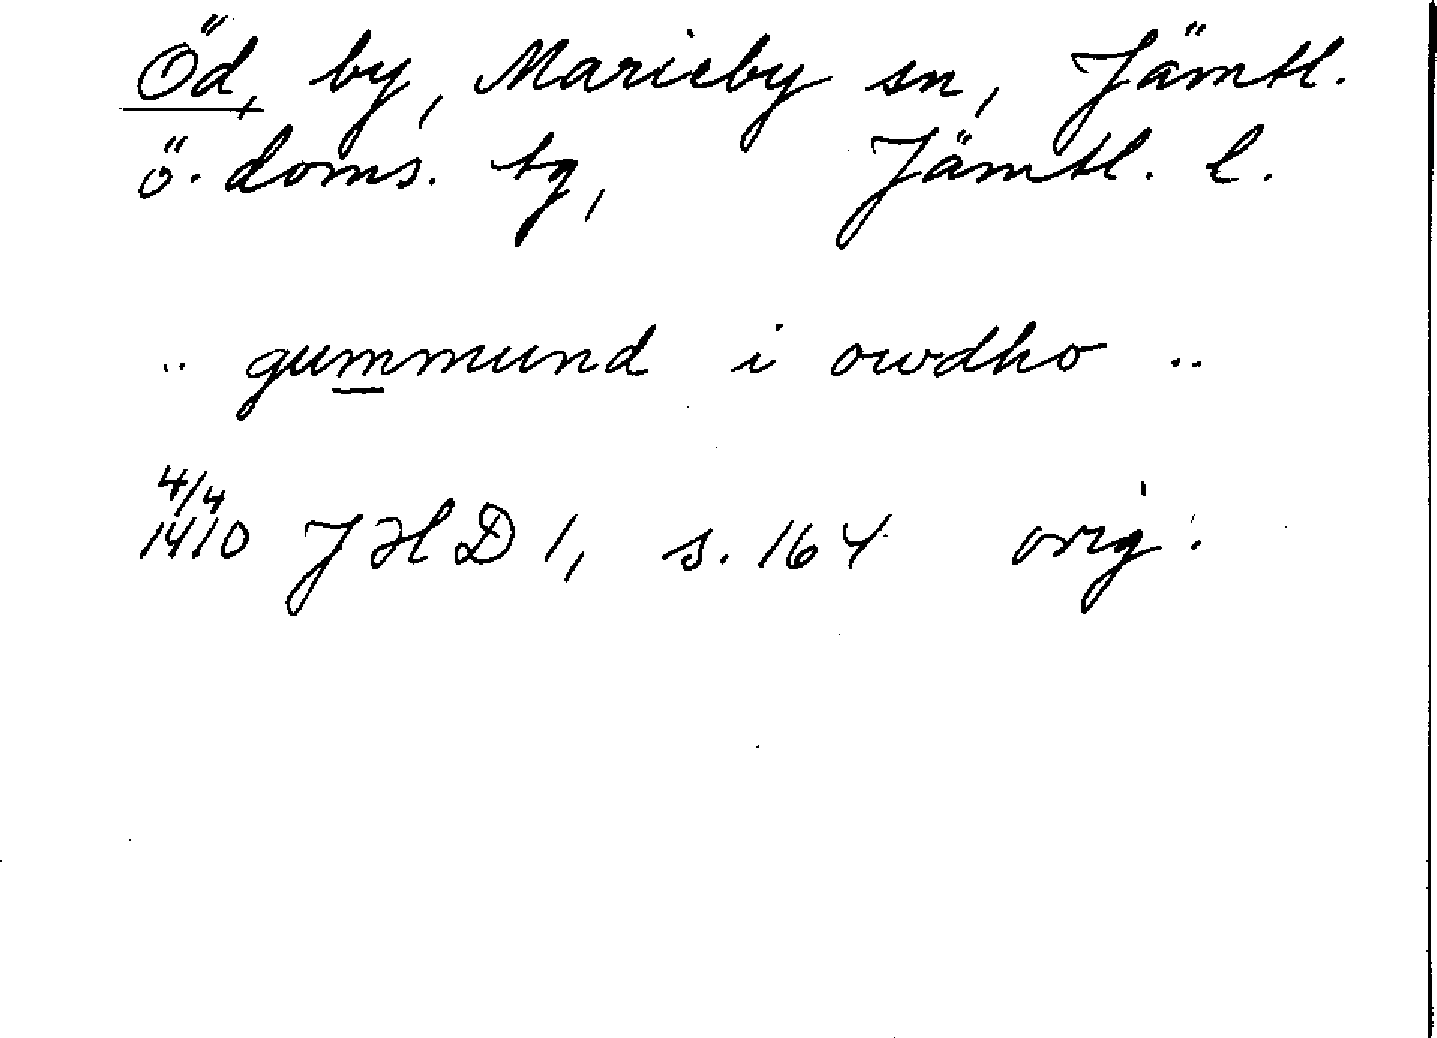 Öd, by, Marieby sn, Jämtl.
ö. doms. tg, Jämtl. l.
.. gummund i owdho ..
4/4
1410 JHD 1, s. 164 orig.